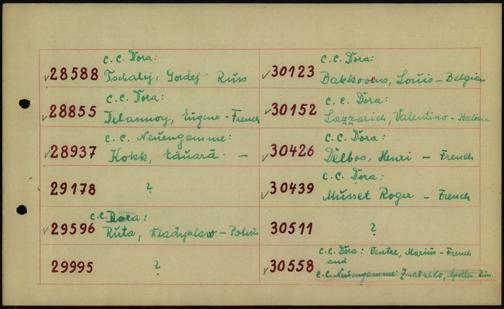 C.C. Dora:
√28588 Tschalij, Gordej - Russ
C.C. Dora:
√28855 Delannoy, Eugène - French
C.C. Neuengamme:
√28937 Kokk, Eduard: -
29178 ?
C.C. Dora:
√29596 Ruta, Wladyslaw - Polish
29995 ?
C.C. Dora:
√30123 Bakkovens, Louis - Belgian
C.C. Dora:
√30152 Lazzarich, Valentino - Italian
C.C. Dora:
√30426 Delbos, Henri - French
C.C. Dora:
√30439 Musset Roger - French
30511 ?
C.C. Dora: Ventre, Marius - French
and
√30558 C.C. Neuengamme: